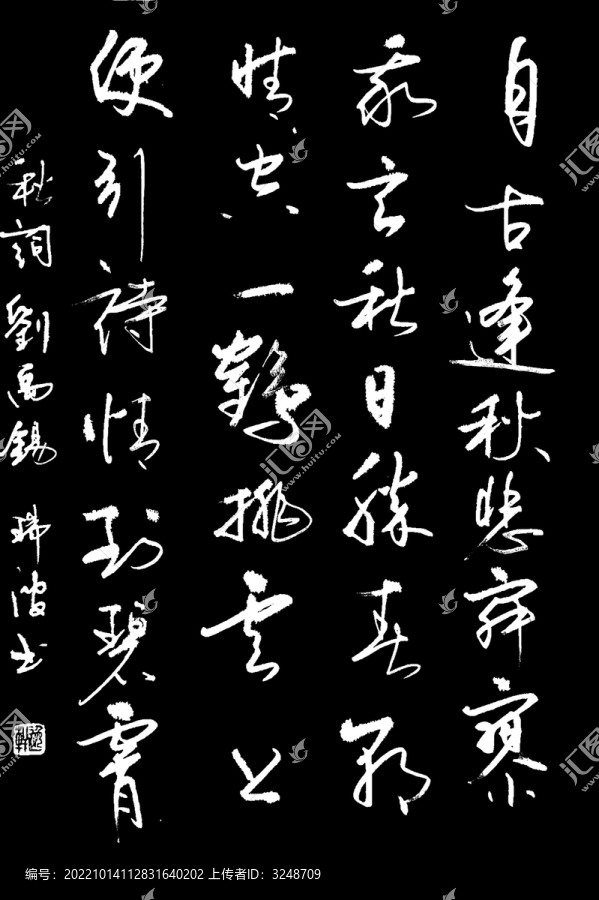 自古逢秋悲寂寥
我言秋日勝春朝
晴空一鶴排雲上
便引詩情到碧霄
秋詞 劉禹錫 瑞波书
汇图网
www.huitu.com
编号：20221014112831640202 上传者ID：3248709